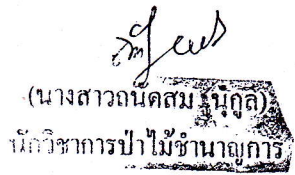 (นางสาวถนัดสม นุ้กูล)
นักวิชาการป่าไม้ชำนาญการ